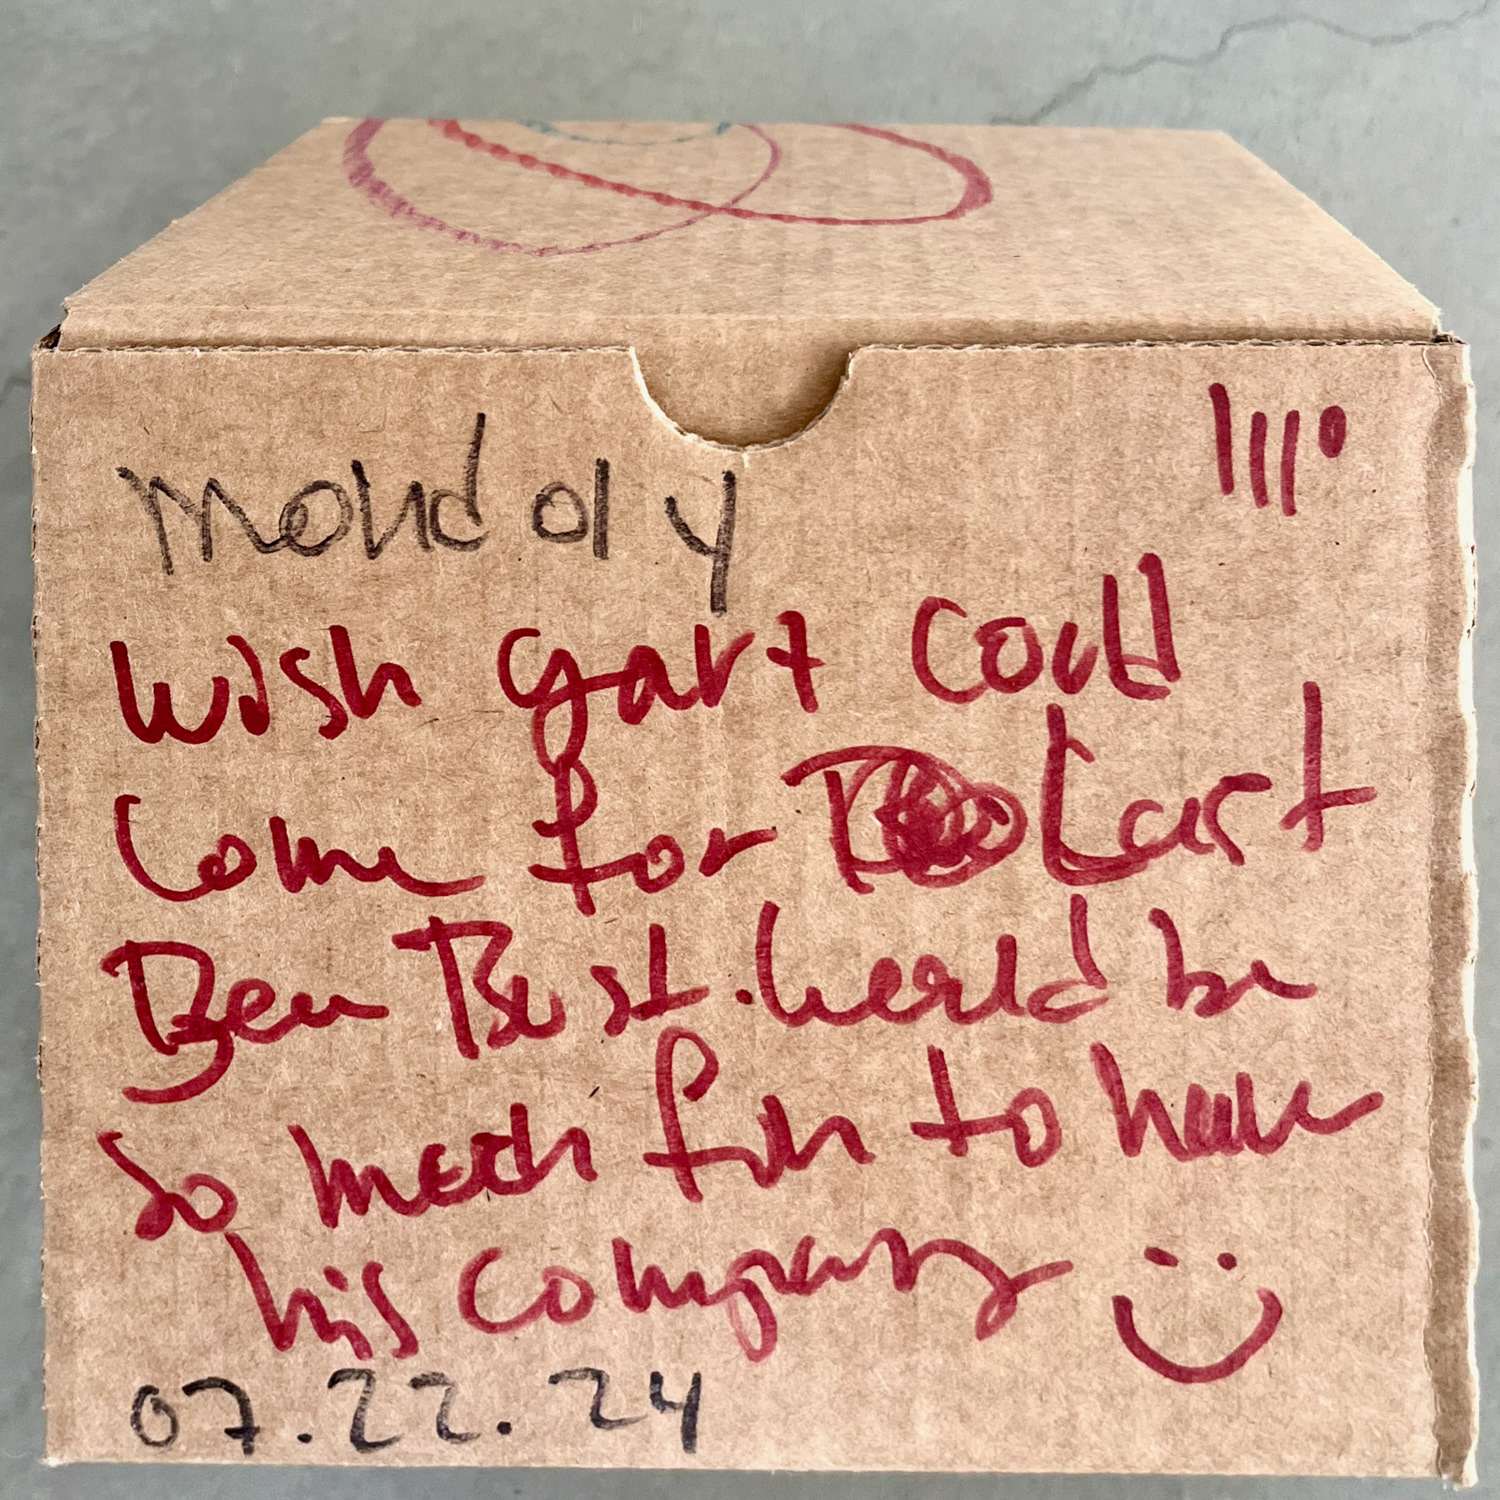 Monday
Wish gart could
Come for Last
Ben Bust. World be
So much fun to have
his company
07.22.24